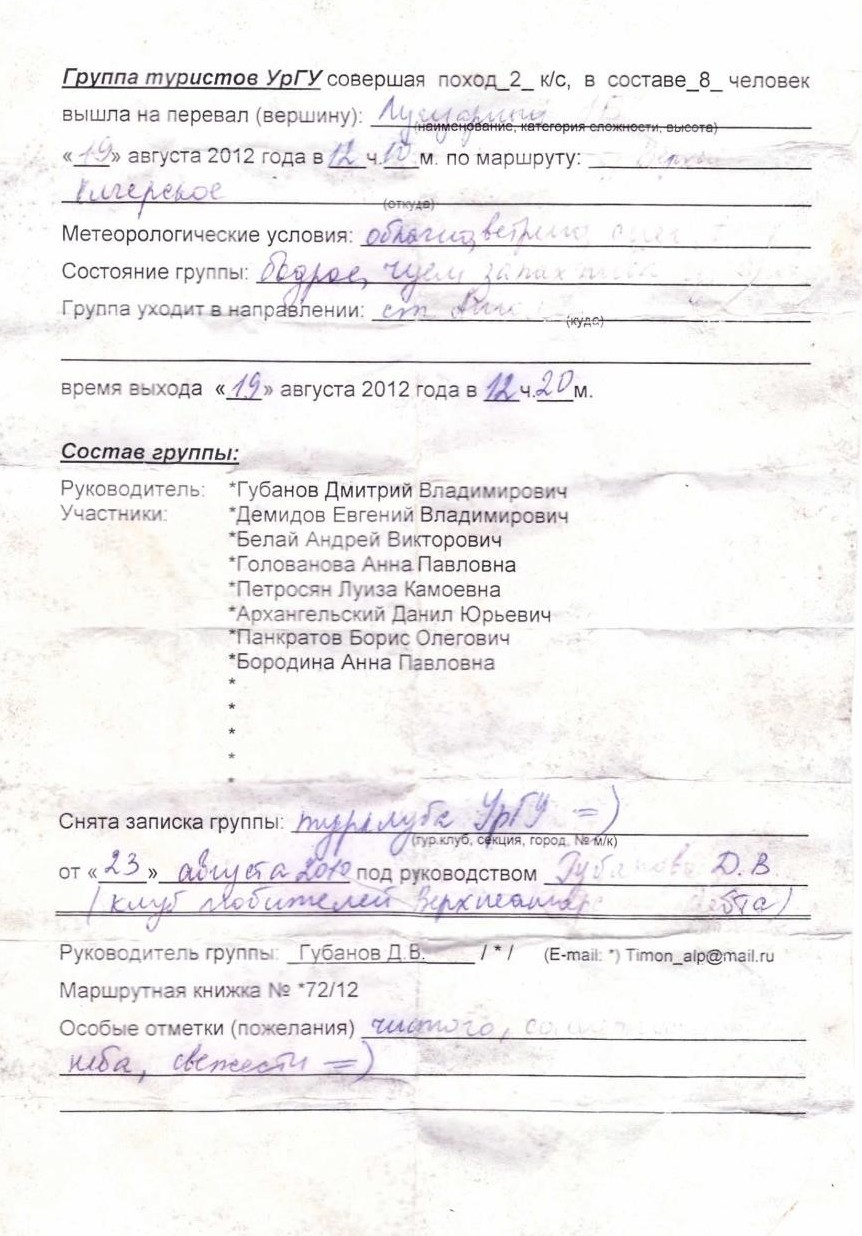 Группа туристов УрГУ совершая поход_2_ к/с, в составе_8_ человек
вышла на перевал (вершину):
(наименование, категория сложности, высота)
«19» августа 2012 года в 12 ч. 10 м. по маршруту:
(откуда)
Метеорологические условия:
Состояние группы: бодрое, чуем запах
Группа уходит в направлении: ст
(куда)
время выхода «19» августа 2012 года в 12 ч. 20 м.
Состав группы:
Руководитель: *Губанов Дмитрий Владимирович
Участники: *Демидов Евгений Владимирович
*Белай Андрей Викторович
*Голованова Анна Павловна
*Петросян Луиза Камоевна
*Архангельский Данил Юрьевич
*Панкратов Борис Олегович
*Бородина Анна Павловна
*
*
*
*
*
Снята записка группы: турклуба УрГУ =)
(тур.клуб, секция, город, № м/к)
от «23» августа 2010 под руководством Губанова Д.В
(клуб любителей
Руководитель группы: Губанов Д.В. / * / (E-mail: *) Timon_alp@mail.ru
Маршрутная книжка № *72/12
Особые отметки (пожелания) чистого,
неба, свежести =)